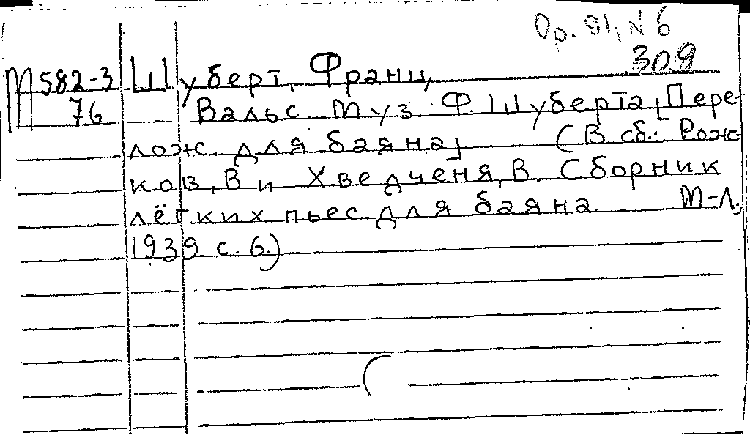 Op. 91, № 6
309
М 582-3 Шуберт, Франц,
76 Вальс. Муз. Ф. Шуберта, [Пере
лож. для баяна] (В сб.: Рож
ков, В. и Хведченя, В. Сборник
лёгких пьес для баяна. М-Л,
1939 с. 6.)